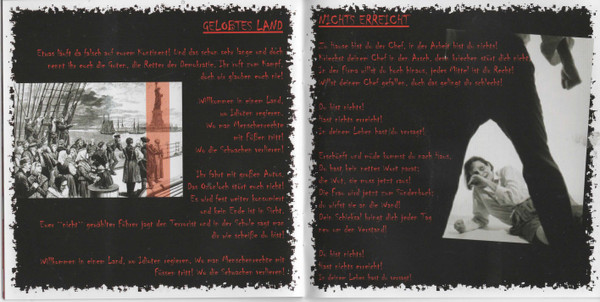 GELOBTES LAND
Etwas läuft da falsch auf eurem Kontinent! Und das schon sehr lange und doch
nennt ihr euch die Guten, die Retter der Demokratie. Ihr ruft zum Kampf,
doch ein glauben euch nie!
Willkommen in einem Land,
an Idioten regieren,
Wo man Menschenrechte
mit Füßen tritt!
Wo die Schwachen verlieren!
Ihr fahrt mit großen Autos,
Das Ölloch stört euch nicht!
Es wird fest weiter konsumiert
und kein Ende ist in Sicht.
Euer "nicht" gewählter Führer jagt den Terrorist und in der Schule sagt man
dir wie scheiße du bist!
Willkommen in einem Land, an Idioten regieren, Wo man Menschenrechte mit
Füssen tritt! Wo die Schwachen verlieren!
NICHTS ERREICHT
Zu Hause bist du der Chef, in der Arbeit bist du nichts!
Kriechst deinem Chef in den Arsch, denn kriechen stört dich nicht
In der Firma willst du hoch hinaus, jedes Mittel ist dir Recht!
Willst deinem Chef gefallen, doch das gelingt dir schlecht!
Du bist nichts!
Hast nichts erreicht!
In deinem Leben hast du versagt!
Erschöpft und müde kommst du nach Haus,
Du hast kein nettes Wort parat;
die Wut, sie muss jetzt raus!
Die Frau wird jetzt zum Sündenbock;
du wirfst sie an die Wand!
Dein Schicksal bringt dich jeden Tag
neu um den Verstand!
Du bist nichts!
Hast nichts erreicht!
In deinem Leben hast du versagt!